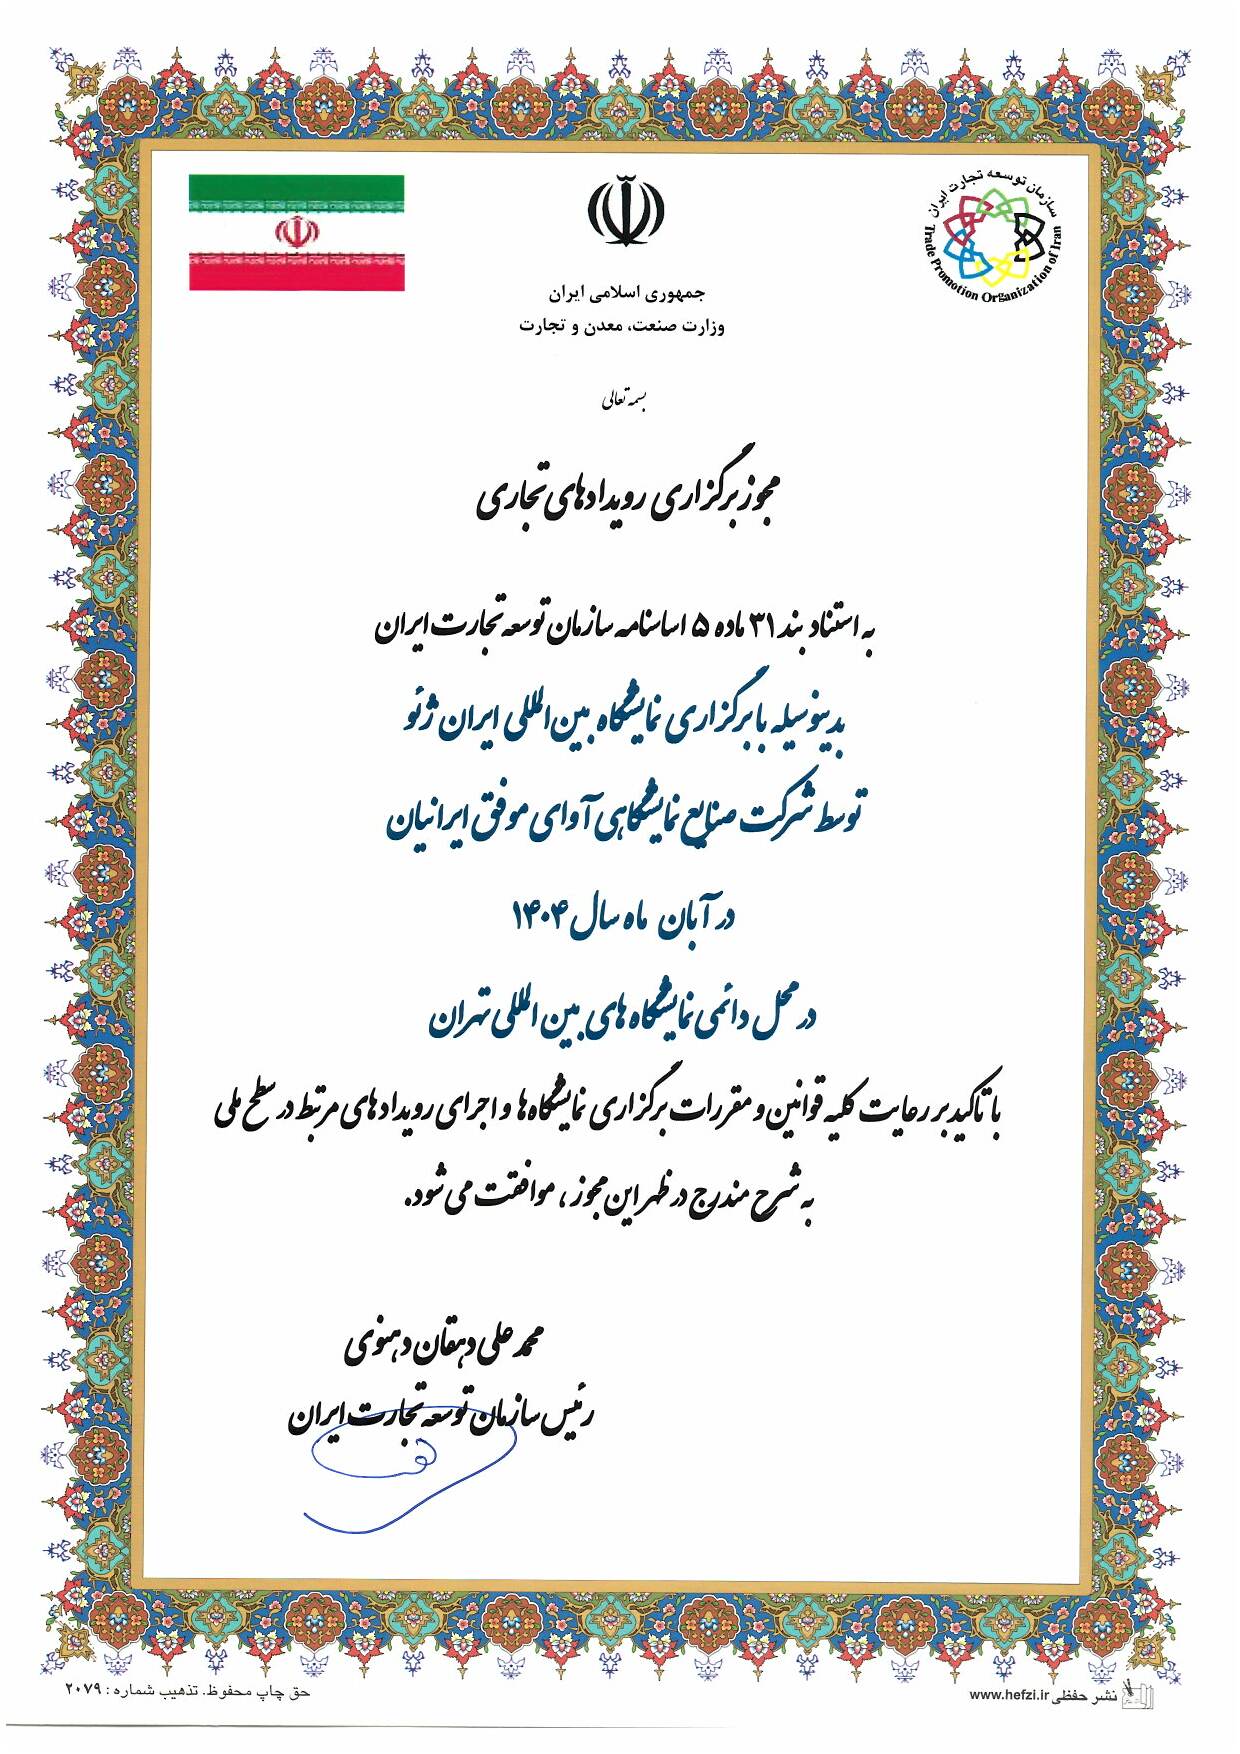 سازمان توسعه تجارت ایران
Trade Promotion Organization of Iran
جمهوری اسلامی ایران
وزارت صنعت، معدن و تجارت
بسمه تعالی
مجوز برگزاری رویدادهای تجاری
به استناد بند ۳۱ ماده ۵ اساسنامه سازمان توسعه تجارت ایران
بدینوسیله با برگزاری نمایشگاه بین المللی ایران ژئو
توسط شرکت صنایع نمایشگاهی آوای موفق ایرانیان
در آبان ماه سال ۱۴۰۴
در محل دائمی نمایشگاه های بین المللی تهران
با تاکید بر رعایت کلیه قوانین و مقررات برگزاری نمایشگاه‌ها و اجرای رویدادهای مرتبط در سطح ملی
به شرح مندرج در ظهر این مجوز، موافقت می شود.
محمد علی دهقان دهنوی
رئیس سازمان توسعه تجارت ایران
نشر حفظی www.hefzi.ir
حق چاپ محفوظ. تذهیب شماره : ۲۰۷۹